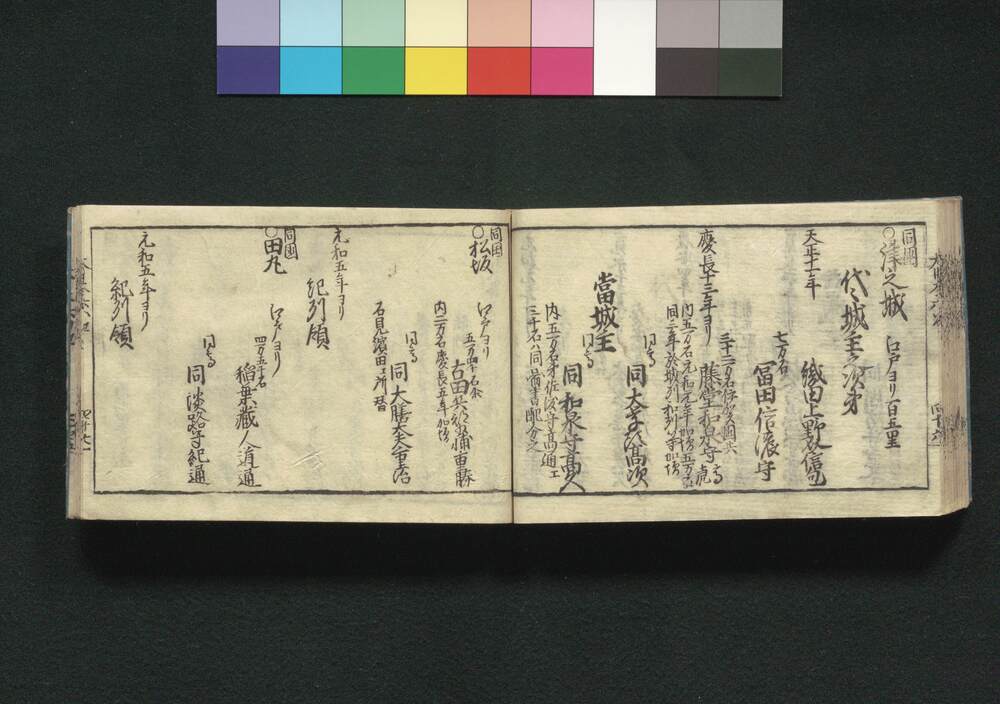 同國
○津之城 江戸ヨリ百五里
代々城主之次第
天正十二年
織田上野
七万石
冨田信濃守
慶長十三年ヨリ
三十二万石伊賀一國
藤堂和泉守高虎
内五万石元和元年加増五万石
同三年於勢列
同大学頭高次
當城主
同和泉守高久
内五万石弟佐渡守高通エ
三千石ハ同
同國
○松坂 江戸ヨリ
古田兵部少輔重勝
内二万石慶長五年加増
同大膳大夫重治
石見濱田エ所替
元和五年ヨリ
紀列領
同國
○田丸 江戸ヨリ
四万五千石
稲葉藏人道通
同淡路守紀通
元和五年ヨリ
紀列領